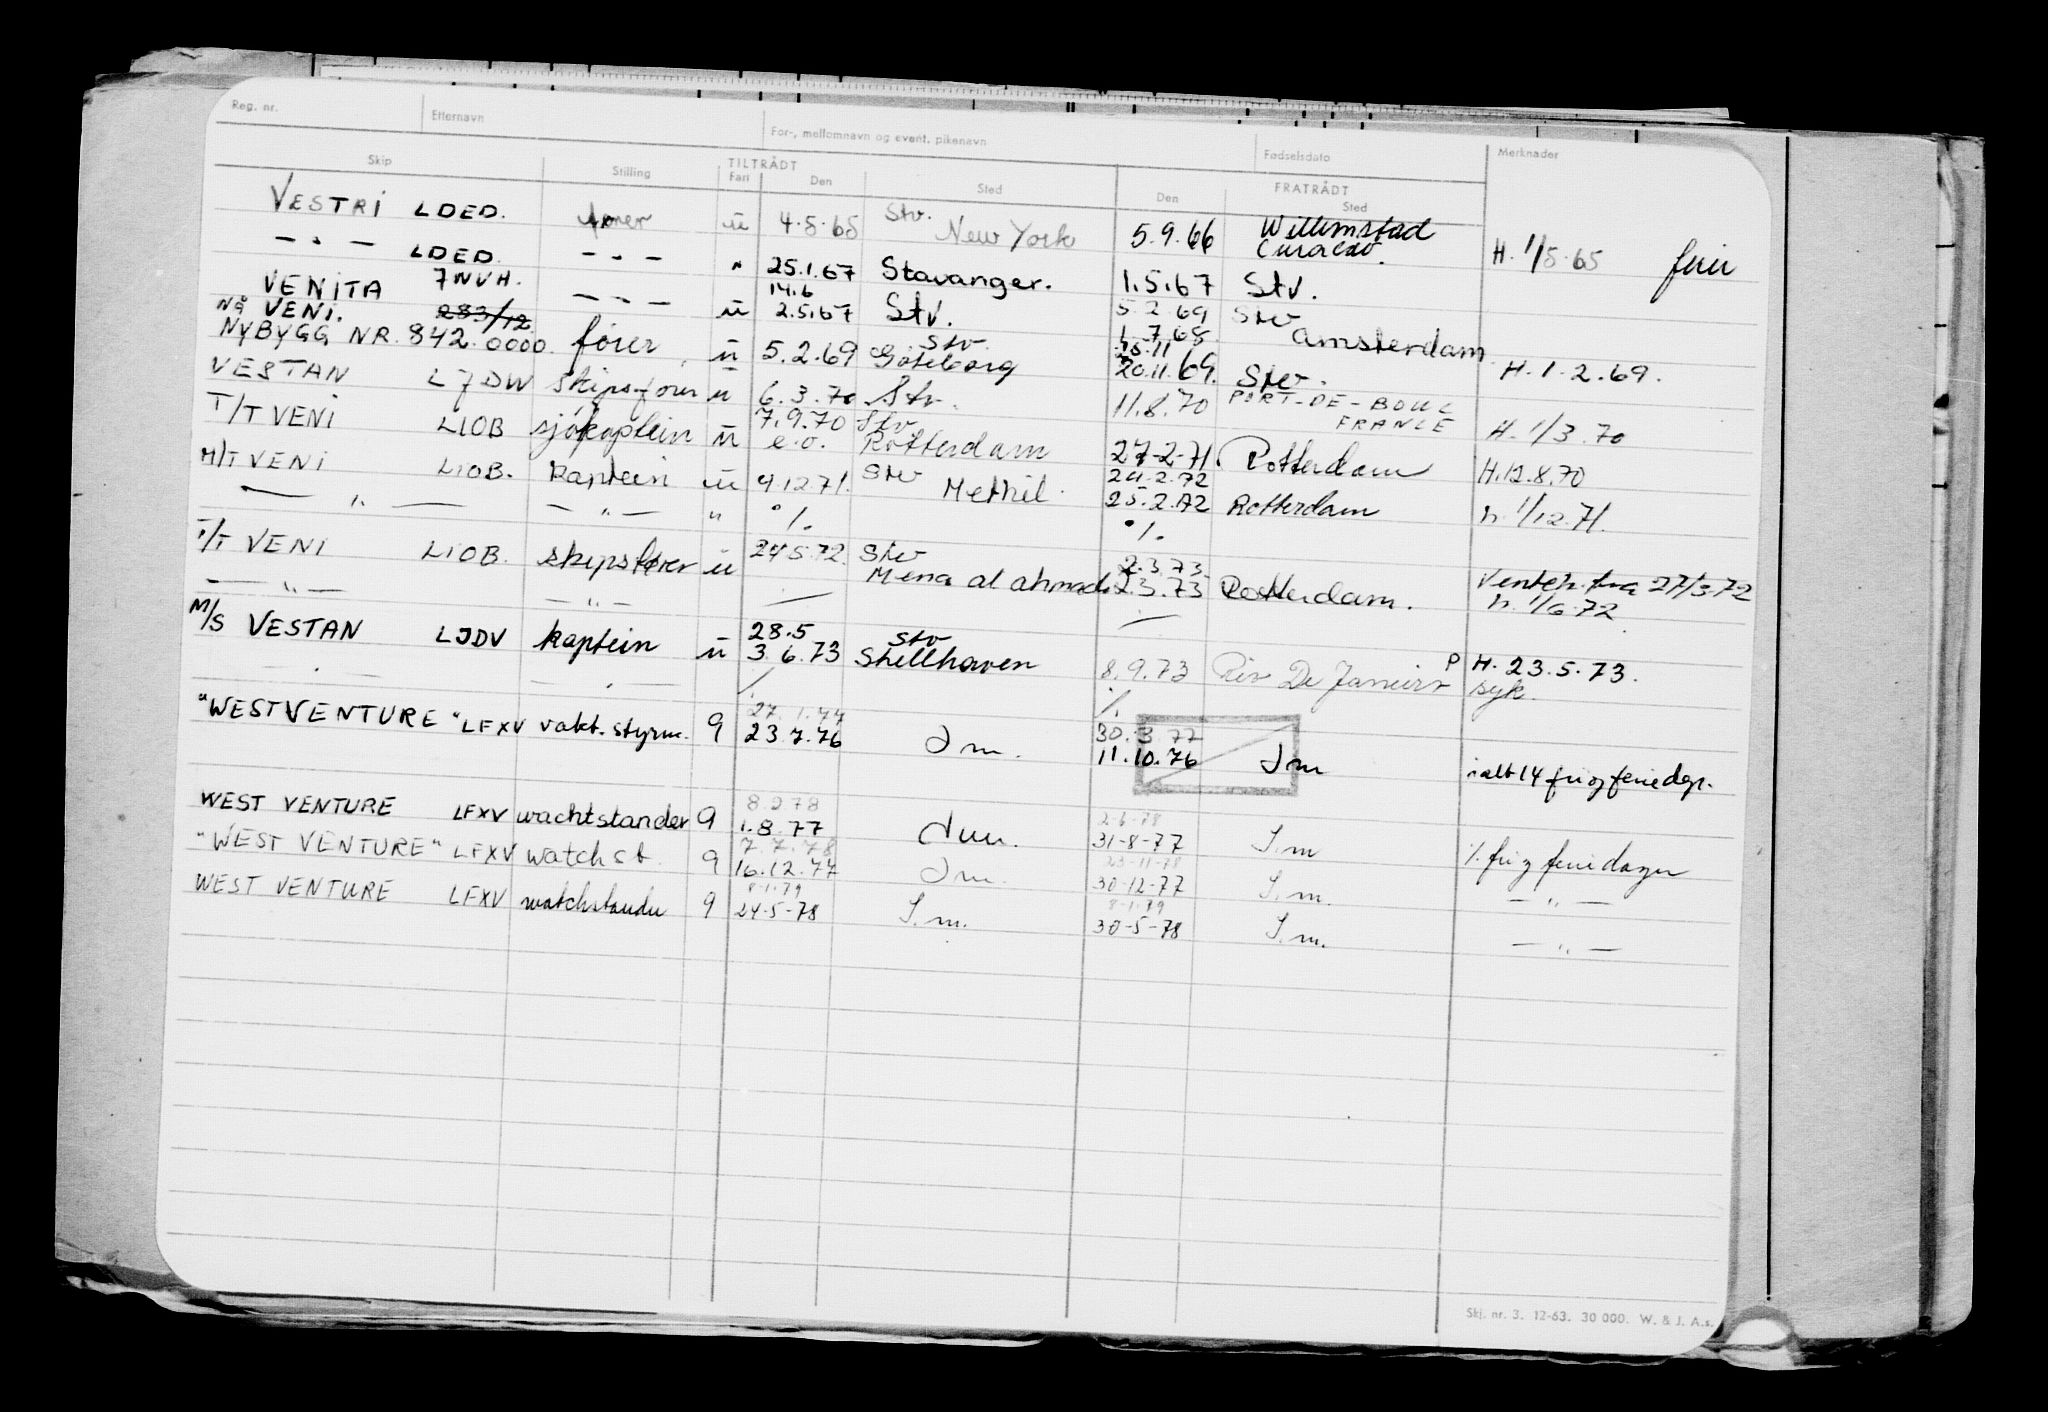 Reg. nr. Etternavn For-, mellomnavn og event. pikenavn Fødselsdato Merknader
Skip Stilling TILTRÅDT FRATRÅDT
Fart Den Sted Den Sted
VESTRI LDED. fører u 4.5.65 Stv. New York 5.9.66 Willemstad Curacao. H. 1/5.65 ferie
— " — LDED. — " — " 25.1.67 Stavanger. 1.5.67 Stv.
VENITA 7NVH. — " — u 14.6 2.5.67 Stv. 5.2.69 Stv
NÅ VENI. 283/12 1.7.68 Amsterdam
NYBYGG NR. 842.0000. fører u 5.2.69 Stv. Göteborg 20.11.69. Stv. H. 1.2.69.
VESTAN LJDW skipsfører u 6.3.70 Stv. 11.8.70 PORT-DE-BOUC FRANCE H. 1/3.70
T/T VENI LIOB sjøkaptein u 7.9.70 e.o. Stv Rotterdam 27-2-71 Rotterdam H.12.8.70
M/T VENI LIOB. kaptein u 9.12.71. Stv Methil. 24.2.72 25.2.72 Rotterdam h. 1/12.71.
— " — — " — " ./. ./.
T/T VENI LIOB. skipsfører u 24.5.72. Stv Mena al ahmadi 2.3.73 2.3.73 Rotterdam. Ventep. fra 27/3.72 h. 1/6.72
— " — — " —
M/S VESTAN LJDV kaptein u 28.5 3.6.73 Stv Shellhaven 8.9.73 Rio De Janeiro P H. 23.5.73. syk.
— " — — " — ./. ./.
"WESTVENTURE" LFXV vakt. styrm. 9 27.1.77 23.7.76 I m. 30.3.77 11.10.76 I m ialt 14 fri og feriedgr.
WEST VENTURE LFXV wachtstander 9 8.2.78 1.8.77 I m. 2-6-78 31-8-77 I.m ./. fri og feriedager
"WEST VENTURE" LFXV watchst. 9 7.7.78 16.12.77 I m. 23-11-78 30-12-77 I.m. — " —
WEST VENTURE LFXV watchstander 9 8.1.79 24-5-78 I.m. 8-1.79 30-5-78 I.m. — " —
Skj. nr. 3. 12-63. 30 000. W. & J. A.s.